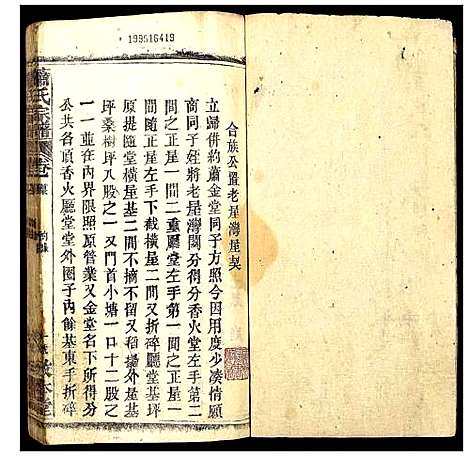 199516419
合族公置老屋灣屋契
立歸併約蕭金堂同子方照今因用度少湊情願
商同子姪將老屋灣鬮分得分香火堂左手第二
間正屋一間二重廳堂左手第一間之正屋一
間隨正屋左手下截橫屋二間又折碎廳堂基坪
原提隨堂橫屋基二間不摘不留又稻場外屋基
坪桑樹坪八股之一又門首小塘一口十二股之
一一並在內界限照原管業又金堂名下所得分
公共各頂香火廳堂堂外圈子內餘基東手折碎
蕭氏宗譜